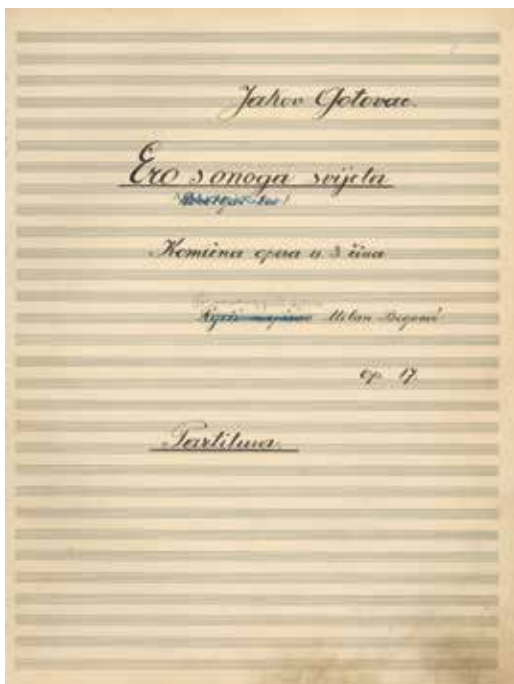 Jakov Gotovac.
Ero s onoga svijeta
Komična opera u 3 čina
Milan Begović
op. 17.
Partitura.